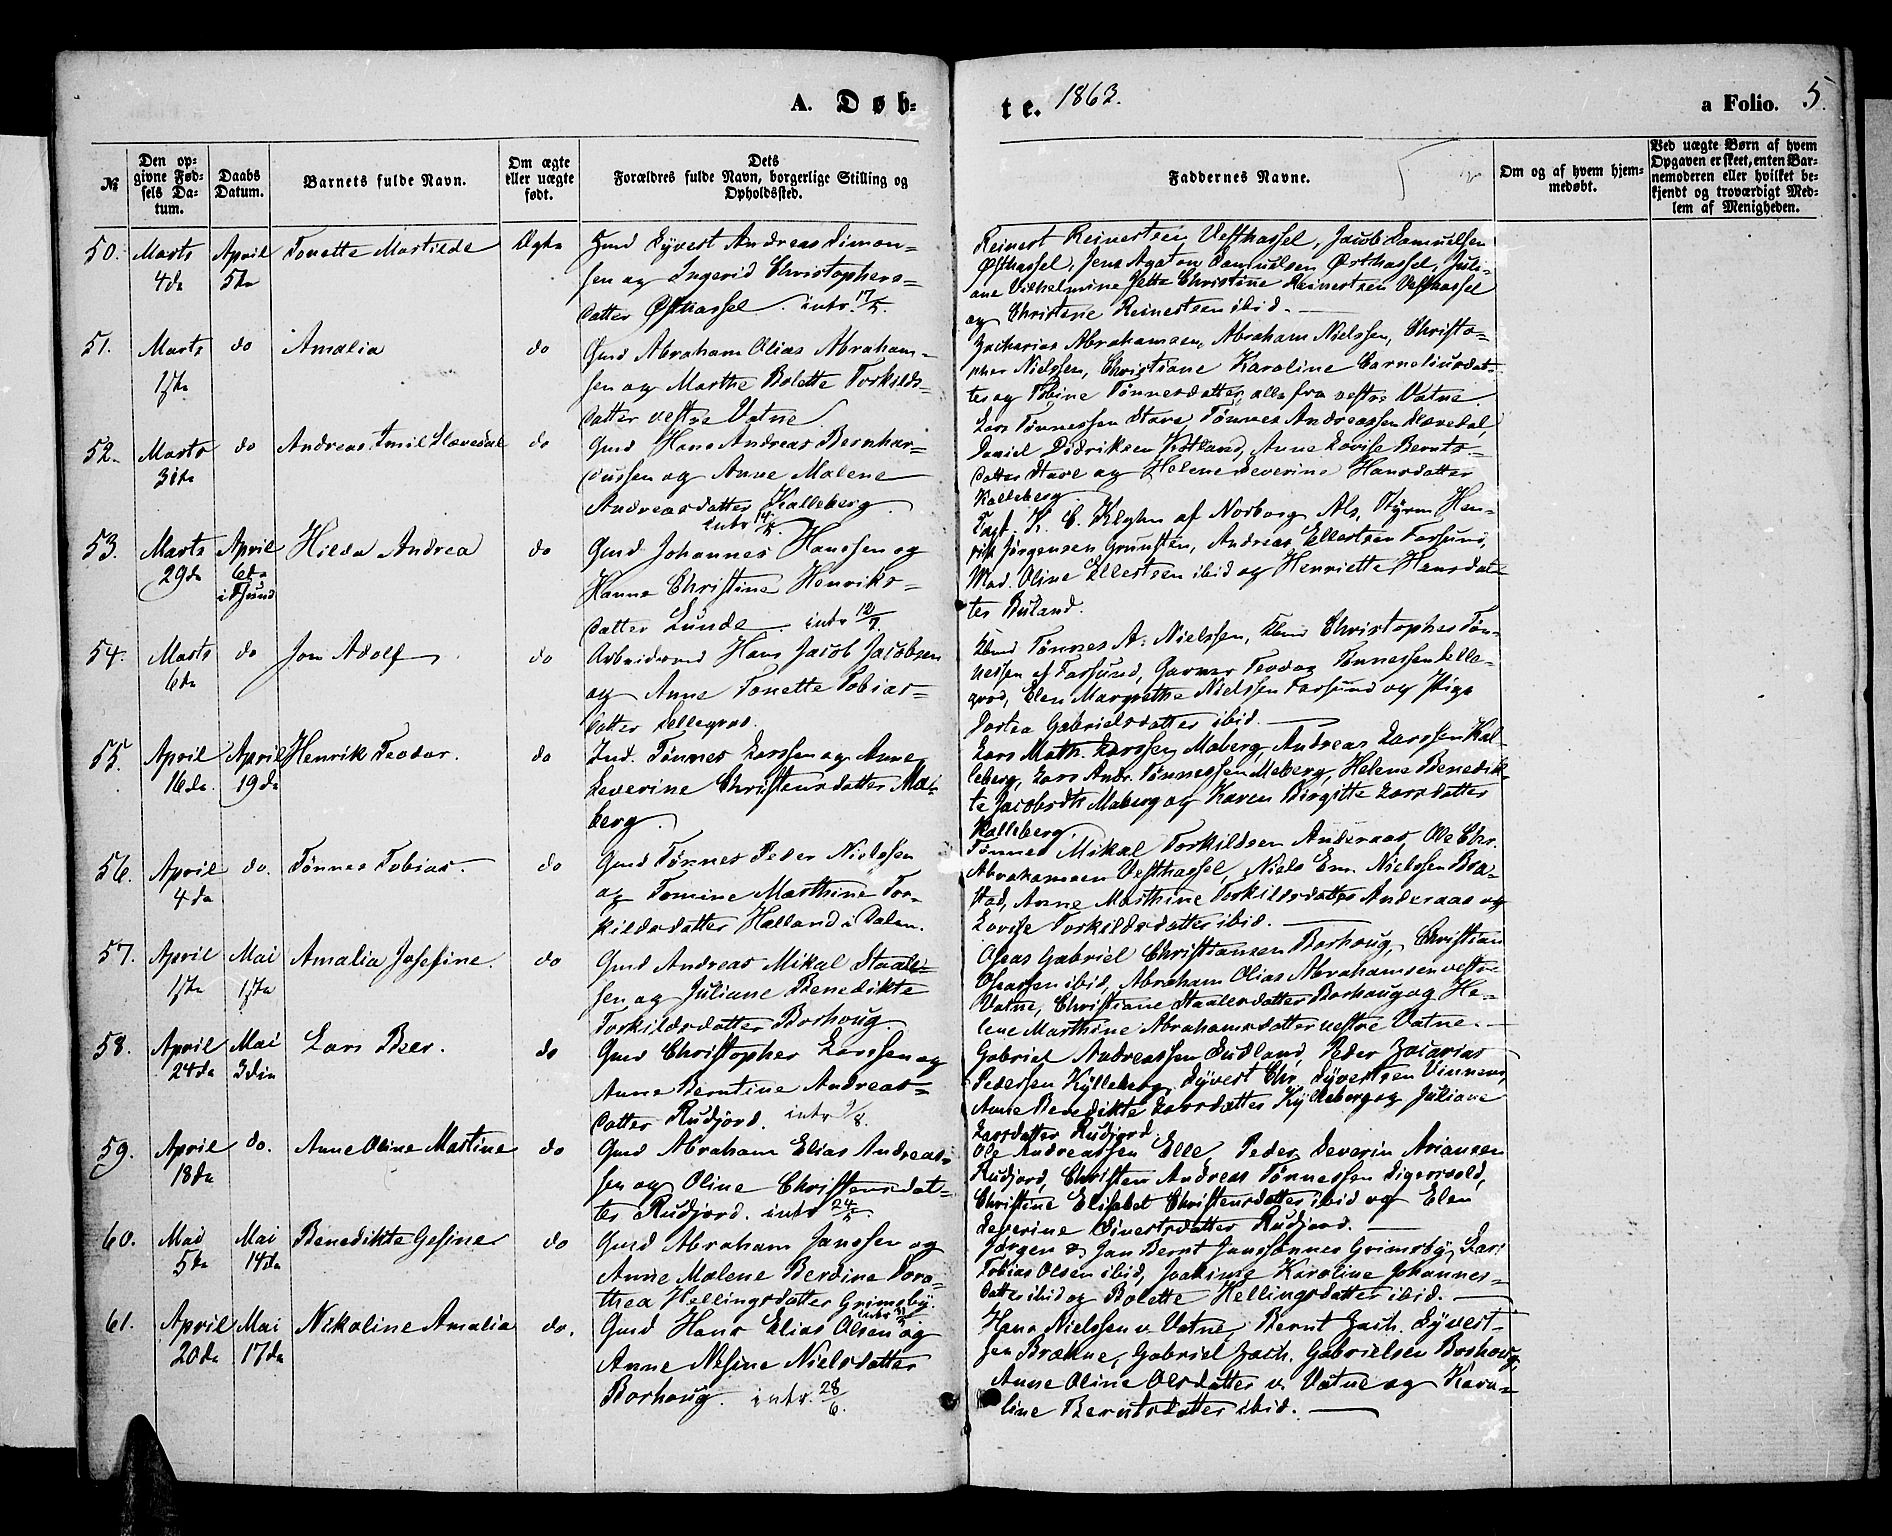 A. Døb-
te. 1863.
a Folio. 5.
№
Den op-
givne Fød-
sels Da-
tum.
Daabs
Datum.
Barnets fulde Navn.
Om ægte
eller uægte
født.
Dets
Forældres fulde Navn, borgerlige Stilling og
Opholdssted.
Faddernes Navne.
Om og af hvem hjem-
medøbt.
Ved uægte Børn af hvem
Opgaven er skeet, enten Bar-
nemoderen eller hvilket be-
kjendt og troværdigt Med-
lem af Menigheden.
50. Marts 4de April 5te Tonette Martilde Ægte
Gmd Syvert Andreas Simon-
sen og Ingerid Christophers-
datter Østhassel. intr. 17/5.
Reinert Reinertsen Vesthassel, Jacob Samuelsen
Østhassel, Jens Agaton Samuelsen Østhassel, Juli-
ane Vilhelmine Jette Christine Reinertsen Vesthassel
og Christine Reinertsen ibid.
51. Marts 17de do Amalia do
Gmd Abraham Olias Abraham-
sen og Marthe Bolette Torkilds-
datter vestre Vatne.
Zacharias Abrahamsen, Abraham Nielssen, Christo-
pher Nielssen, Christiane Karoline Corneliusdat-
ter og Tobine Tønnesdatter, alle fra vestre Vatne.
52. Marts 31te do Andreas Emil Hævedal do
Gmd Hans Andreas Bernhar-
dussen og Anne Malene
Andreasdatter Kalleberg.
intr 14/5
Lars Tønnessen Stare, Tønnes Andreassen Hævedal,
Daniel Didriksen Østland, Anne Lovise Bernts-
datter Stare og Helene Severine Hansdatter
Kalleberg
53. Marts 29de April 6te i Fsund Hilda Andrea do
Gmd Johannes Hanssen og
Hanne Christine Henriks-
datter Lunde. intr 12/7.
Capt. K. C. Klyhn af Norborg Als, Styrm Hen-
rik Jørgensen Grunsten, Andreas Ellertsen Farsund,
Mad. Oline Ellertsen ibid og Henriette Hansdat-
ter Buland.
54. Marts 6te do Jon Adolf do
Arbeidsmd Hans Jacob Jacobsen
og Anne Tonette Tobias-
datter Lellegrad.
Tønnes A. Nielssen, Christopher Tøn-
nessen af Farsund, Garver Teodor Tønnessen Lelle-
grad, Elen Margrethe Nielssen Farsund og Pige
Dortea Gabrielsdatter ibid.
55. April 16de April 19de Henrik Teodor. do
Ind. Tønnes Larssen og Anne
Severine Christensdatter Ma-
berg.
Lars Math. Larssen Maberg, Andreas Larssen Kal-
leberg, Lars Andr. Tønnessen Maberg, Helene Benedik-
te Jacobsdtr Maberg og Karen Birgitte Larsdatter
Kalleberg.
56. April 4de do. Tønnes Tobias. do
Gmd Tønnes Peder Nielssen
og Tomine Marthine Tor-
kildsdatter Halland i Dalen.
Tønnes Mikal Torkildsen Anderaas, Ole Chr.
Abrahamsen Vesthassel, Niels Em. Nielssen Bra-
stad, Anne Marthine Torkildsdatter Anderaas og
Lovise Torkildsdatter ibid.
57. April 17de Mai 17de Amalia Josefine. do
Gmd Andreas Mikal Staale-
sen og Juliane Benedikte
Torkildsdatter Borhoug.
Oseas Gabriel Christiansen Borhoug, Christian
Oseassen ibid, Abraham Olias Abrahamsen vestre
Vatne, Christiane Staalesdatter Borhoug og He-
lene Marthine Abrahamsdatter vestre Vatne.
58. April 24de Mai 3die Lars Beer. do
Gmd Christopher Larssen og
Anne Berntine Andreas-
datter Rudjord. intr 9/8.
Gabriel Andreassen Sudland, Peder Zacarias
Pedersen Kylleberg, Syvert Chr. Syvertsen Vinnem,
Anne Benedikte Larsdatter Kylleberg og Juliane
Larsdatter Rudjord.
59. April 18de do. Anne Oline Martine do
Gmd Abraham Elias Andreas-
sen og Oline Christensdat-
ter Rudjord. intr 24/5.
Ole Andreassen Elle, Peder Severin Ariansen
Rudjord, Christen Andreas Tønnessen Sigersvold,
Christine Elisabet Christensdatter ibid og Elen
Severine Sivertsdatter Rudjord.
60. Mai 5te Mai 14de Benedikte Gesine do
Gmd Abraham Janssen og
Anne Malene Berdine Doro-
thea Hellingsdatter Grimsby.
Jørgen & Jan Bernt Janssønner Grimsby, Lars
Tobias Olsen ibid, Joakime Karoline Johannes-
datter ibid og Bolette Hellingsdatter ibid.
61. April 20de Mai 17de Nikoline Amalia do.
Gmd Hans Elias Olsen og
Anne Nesine Nielsdatter
Borhoug. intr. 28/6.
Hans Nielssen v. Vatne, Bernt Zach. Syvert-
sen Brække, Gabriel Zach. Gabrielsen Borhoug,
Anne Oline Olsdatter v. Vatne og Karo-
line Berntsdatter ibid.